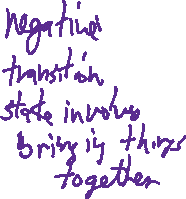 negative
transition
state involves
bringing things
together